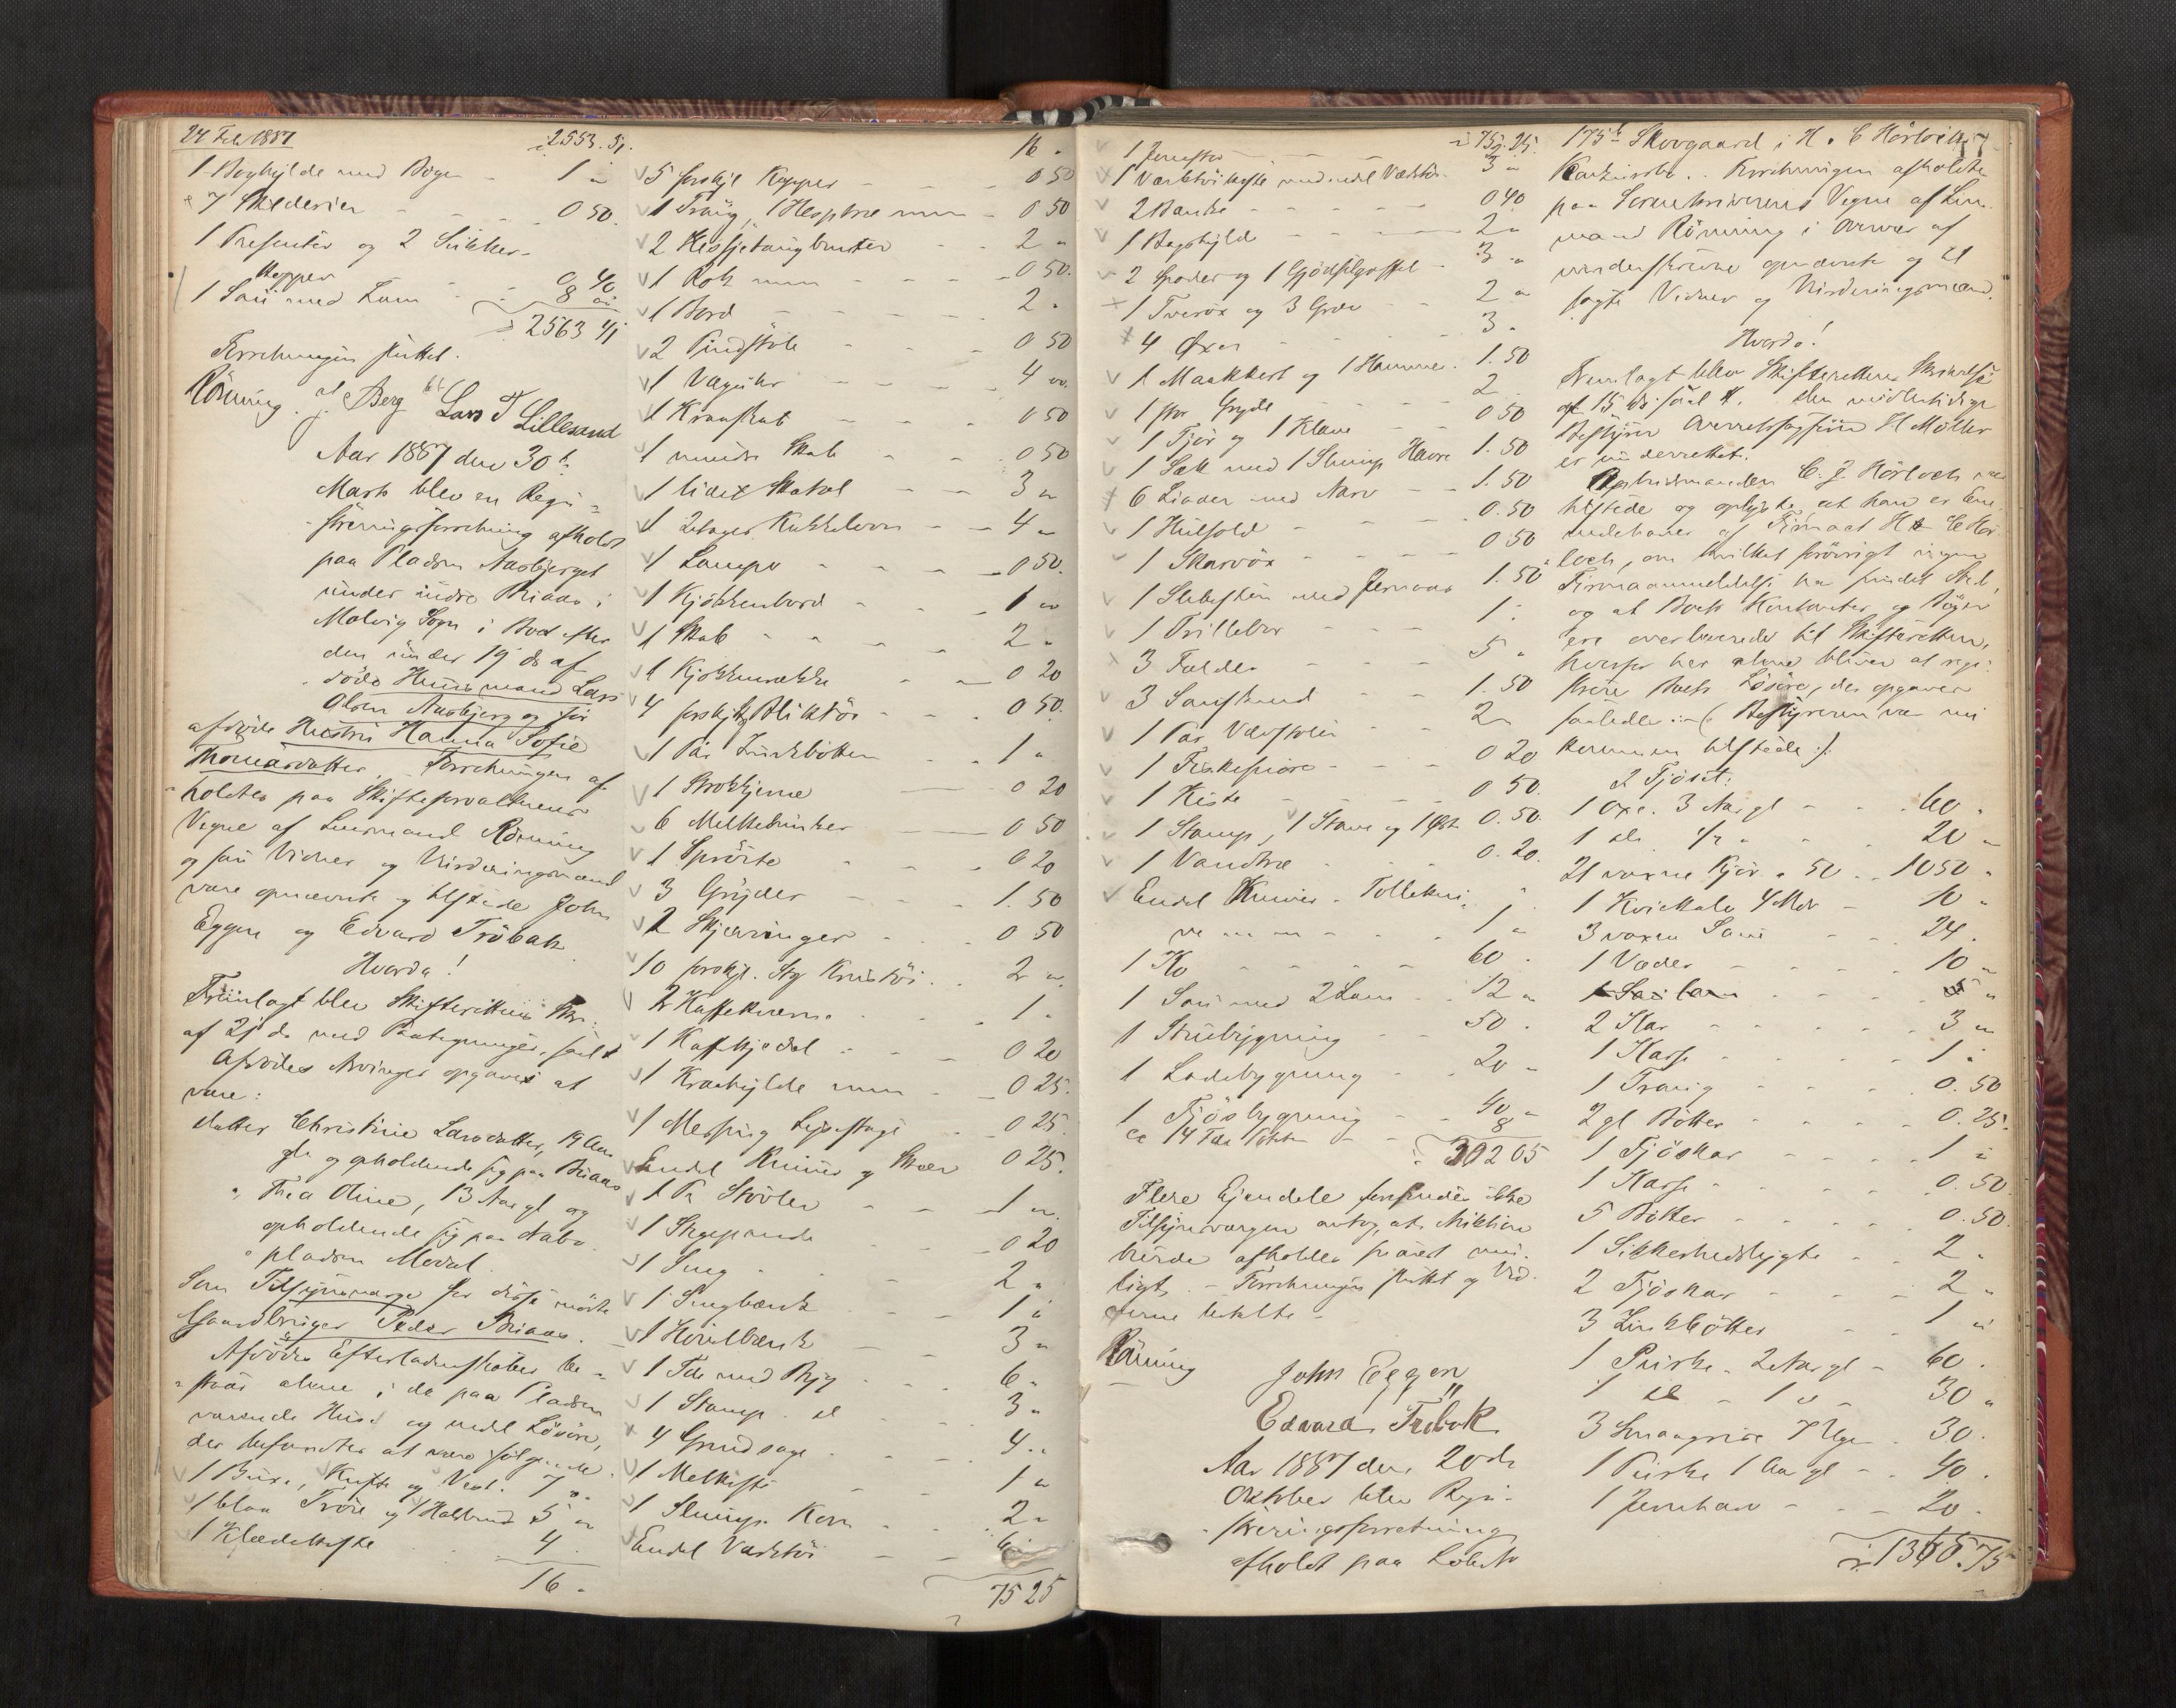 24 Feb 1887
2553.51.
1 Boghylde med Bøger - 1 "
7 Skilderier - - - 0 50.
1 Presentér og 2 Sukker-
kopper 0 40
1 Sau med Lam 8 "
2563 41
Forretningen sluttet.
Rönning. Berg Lars T Lillesand
Aar 1887 den 30te
Marts blev en Regi-
streringsforretning afholdt
paa Pladsen Aasbjerget
under indre Biaas i
Malvig Sogn i Boet efter
den under 19 ds af-
döde Huusmand Lars
Olsen Aasbjerg og før
afdöde Hustru Hanna Sofie
Thomasdatter. Forretningen af-
holdtes paa Skifteforvalterens
Vegne af Lensmand Rönning
og som Vidner og Vurderingsmænd
vare opnævnte og tilstede John
Eggen og Edvard Tröbak
Hvorda!
Fremlagt blev Skifterettens Skr.
af 21 ds med Paategninger, saal.
Afdödes Arvinger opgaves at
være:
datter Christine Larsdatter, 19 Aar
gl. og opholdende sig paa Biaas
" Thea Oline, 13 Aar gl og
opholdende sig paa
pladsen
Som Tilsynsværge for disse mødte
Gaardbruger Peder Biaas.
Afdödes Efterladenskaber be-
staar alene i de paa Pladsen
værende Huse og endel Lösöre,
der befandtes at være følgende
1 Buxe, Kufte og Vest. 7 "
1 blaa Tröie og 1 Halsbind 5 "
1 Klædeskufte 4.
16 -
16 -
5 forskjl Kopper - - - 0 50
1 Traug, 1 Hesptræ mm - 0 50
2 - - 2 "
1 Rok mm - - - 0 50.
1 Bord - - - 2 "
2 Pindstole - - - 0 50
1 Væguhr - - - 4 "
1 Kraaskab - - - 0 50
1 mindre Skab - - 0 50
1 lidet Skatol - - 3 "
1 2etages Kakkelovn - - 4 "
1 Lampe - - - 0 50.
1 Kjökkenbord - - - 1 "
1 Skab - - - 2 "
1 Kjökkenrække - - 0 20
4 forskjl Bliktöi - - - 0 50.
1 Par Zinkbötter - - 1 "
1 Strokkjerne 0 20
6 Melkebunker 0 50
1 Spröite 0 20
3 Gryder - - - 1. 50
2 Skjæringer - - 0 50
10 forskjl. Stkr Krustöi - 2 "
2 Kaffekværne - - 1 "
1 Kaffekjedel - - - 0 20
1 Kraahylde mm - - 0 25.
1 Messing Lysestage - - 0 25.
Endel Knive og Skeer 0 25.
1 Pr Stövler - - - 1 "
1 Stegepande - - 0 20
1 Seng - - - 2 "
1 Sengbænk - - - 1 "
1 Hövelbænk - - 3 "
1 Tde med Byg - - - 6 "
1 Stamp dl - - - 3 "
4 Grindsage - - - 4 "
1 Melkiste - - 1 "
1 Slump Korn - - 2 "
Endel Vadskör - - 6
75 25
75. 25.
1 Jernstör - - - -
1 Værktöikiste med endel Værktöi 3 "
2 Bænke - - - - - 0 40
1 Bagshylde - - - 2 "
2 Spader og 1 Gjödselgaffel - 3 "
1 Tveröx og 3 Greve - - 2 "
4 Øxer - - - 3 "
1 Maakkert og 1 Hammer. 1. 50
1 stor Gryde - - - 2
1 Tjor og 1 Klave - - 0 50
1 Sæk med 1 Slump Havre 1. 50
6 Liader med Aarv - - 1. 50
1 Hulfold - - - 0. 50
1 Skaröx - - - 0 50
1 Slibesten med Jernaas 1. 50
1 Trillebör - - - 1 -
3 Tælder - - - 5 "
3 Saueskind - - - 1. 50
1 Par Vævstole - - 2 "
1 Fiskesnöre - - - 0 20
1 Kiste - - - 0 50.
1 Stamp, 1 Stave og 1 0. 50.
1 Vandtræ - - - 0. 20.
Endel Knive, Tollekni-
ve m m - - - 1 "
1 Ko - - - 60 -
1 Sau med 2 Lam - - 12 "
1 Stuebygning - - 50 -
1 Ladebygning - - 20 "
1 Fjösbygning - - 40 "
ca 14 Tdr - - 8
302 05
Flere Ejendele forefandtes ikke
Tilsynsværgen antog, at Auktion
burde afholdes snarest mu-
ligt. - Forretningen sluttet og Vid-
nerne betalte -
Rönning
John Eggen
Edvard Tröbak
Aar 1887 den 20de
Oktober blev Regi-
streringsforretning
afholdt paa Ladesto
175b Skovgaard i H. & C Hörloch
Konkursbo. Forretningen afholdtes
paa Sorenskriverens Vegne af Lens-
mand Rönning i Overvær af
underskrevne opnævnte og til-
sagte Vidner og Vurderingsmænd.
Hvorda!
Fremlagt blev Skifterettens Skrivelse
af 15 ds saal. Den midlertidige
Bestyrer Overretssagförer H Möller
er underrettet.
Opbudsmanden C. J. Hörloch var
tilstede og oplyste, at han er Ene-
indehaver af Firmaet H & C Hör-
loch, om hvilket forövrigt ingen
Firmaanmeldelse har fundet Sted,
og at Boets Kontanter og Böger
ere overleverede til Skifteretten,
hvorfor her alene bliver at regi-
strere Boets Lösöre, der opgaves
saaledes :-(: Bestyreren var nu
kommen tilstede :).
I Fjöset:
1 Oxe. 3 Aar gl - - - 60 "
1 do 1/2 " - - - 20 "
21 voxne Kjör. a 50 - 1050 "
1 Kviekalv 4 Mdr - 10 "
3 voxen Saue - - 24 .
1 Væder - - - 10 "
1 Sau lam - - - 5 "
2 Kar - - - 3 "
1 Karse - - - 1 "
1 Traug - - - 0. 50
2 gl Bötter - - - 0. 25.
1 Fjöskar - - - 1 "
1 Karse - - - 0. 50.
5 Bötter - - - 0. 50.
1 Sikkerhedslygte - - 2 "
2 Fjöskar - - - 2 "
3 Zinkbötter - - 1 "
1 Purke - 2 Aar gl - 60 .
1 do - 1 " - 30 "
3 Smaagrise 7 Uger - 30 .
1 Purke 1 Aar gl - - 40 .
1 Jernharv - - - 20 .